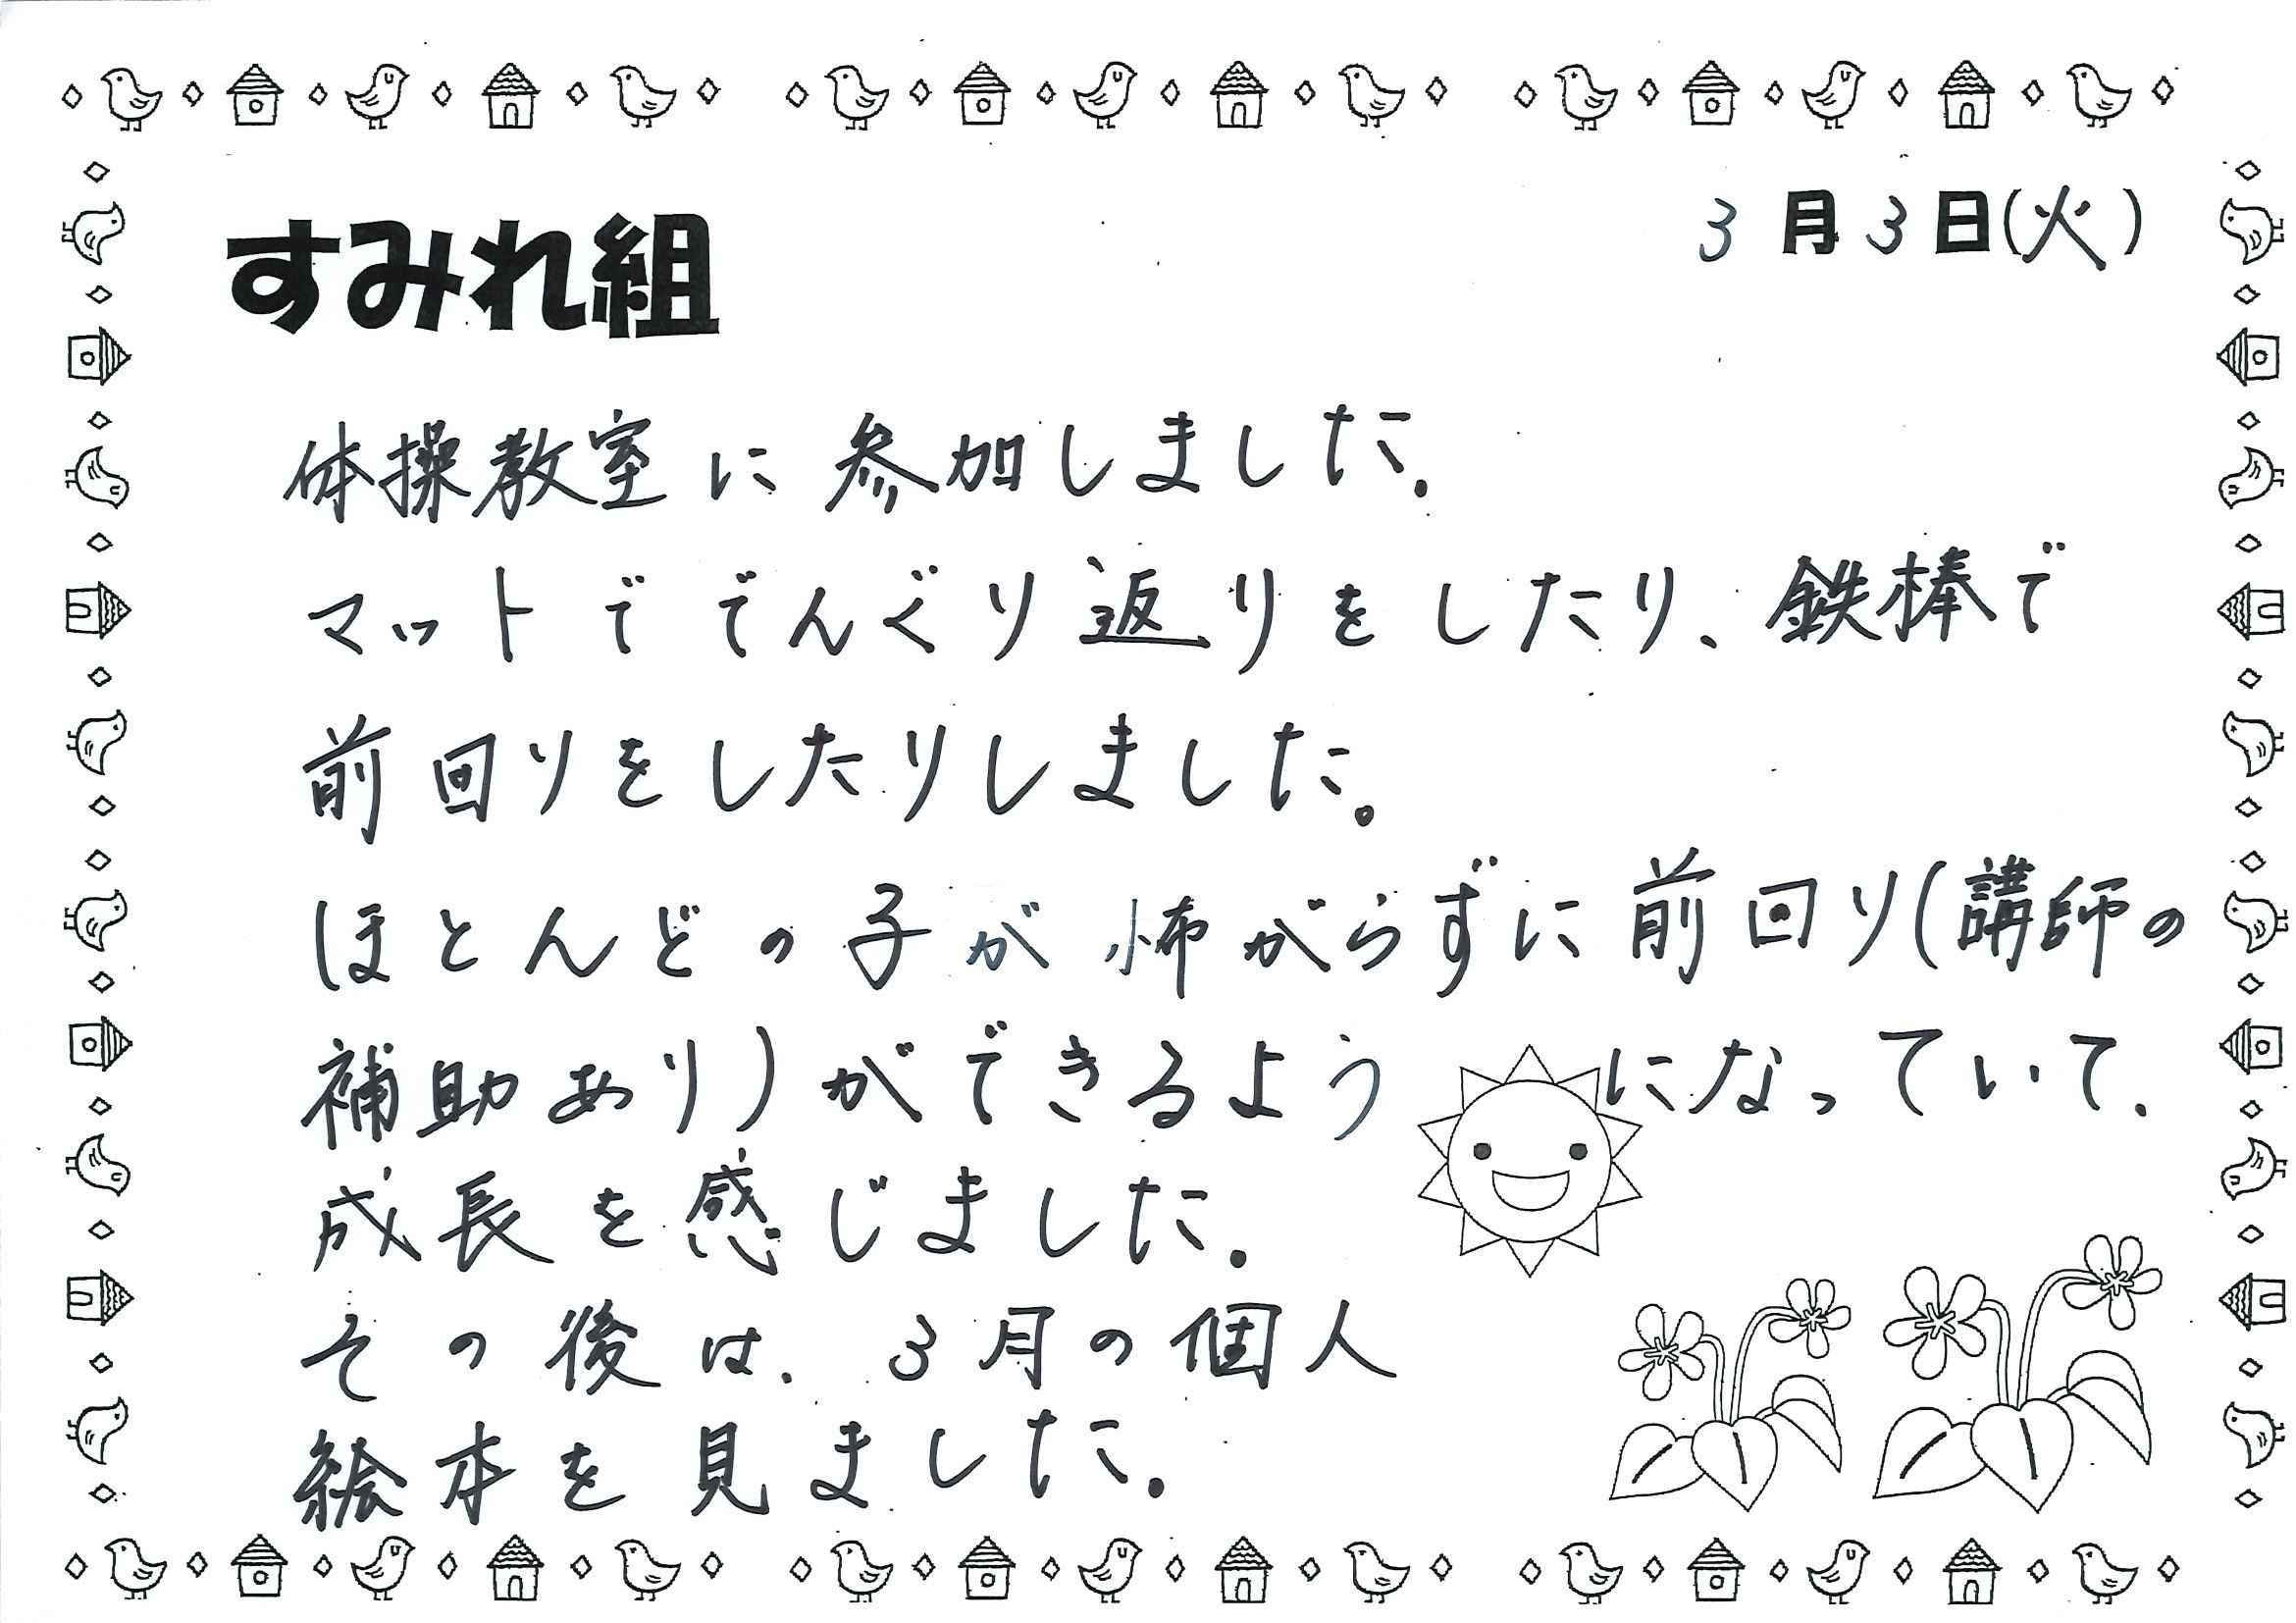 すみれ組
3月3日(火)
体操教室に参加しました。
マットででんぐり返りをしたり、鉄棒で
前回りをしたりしました。
ほとんどの子が怖がらずに前回り(講師の
補助あり)ができるようになっていて、
成長を感じました。
その後は、3月の個人
絵本を見ました。